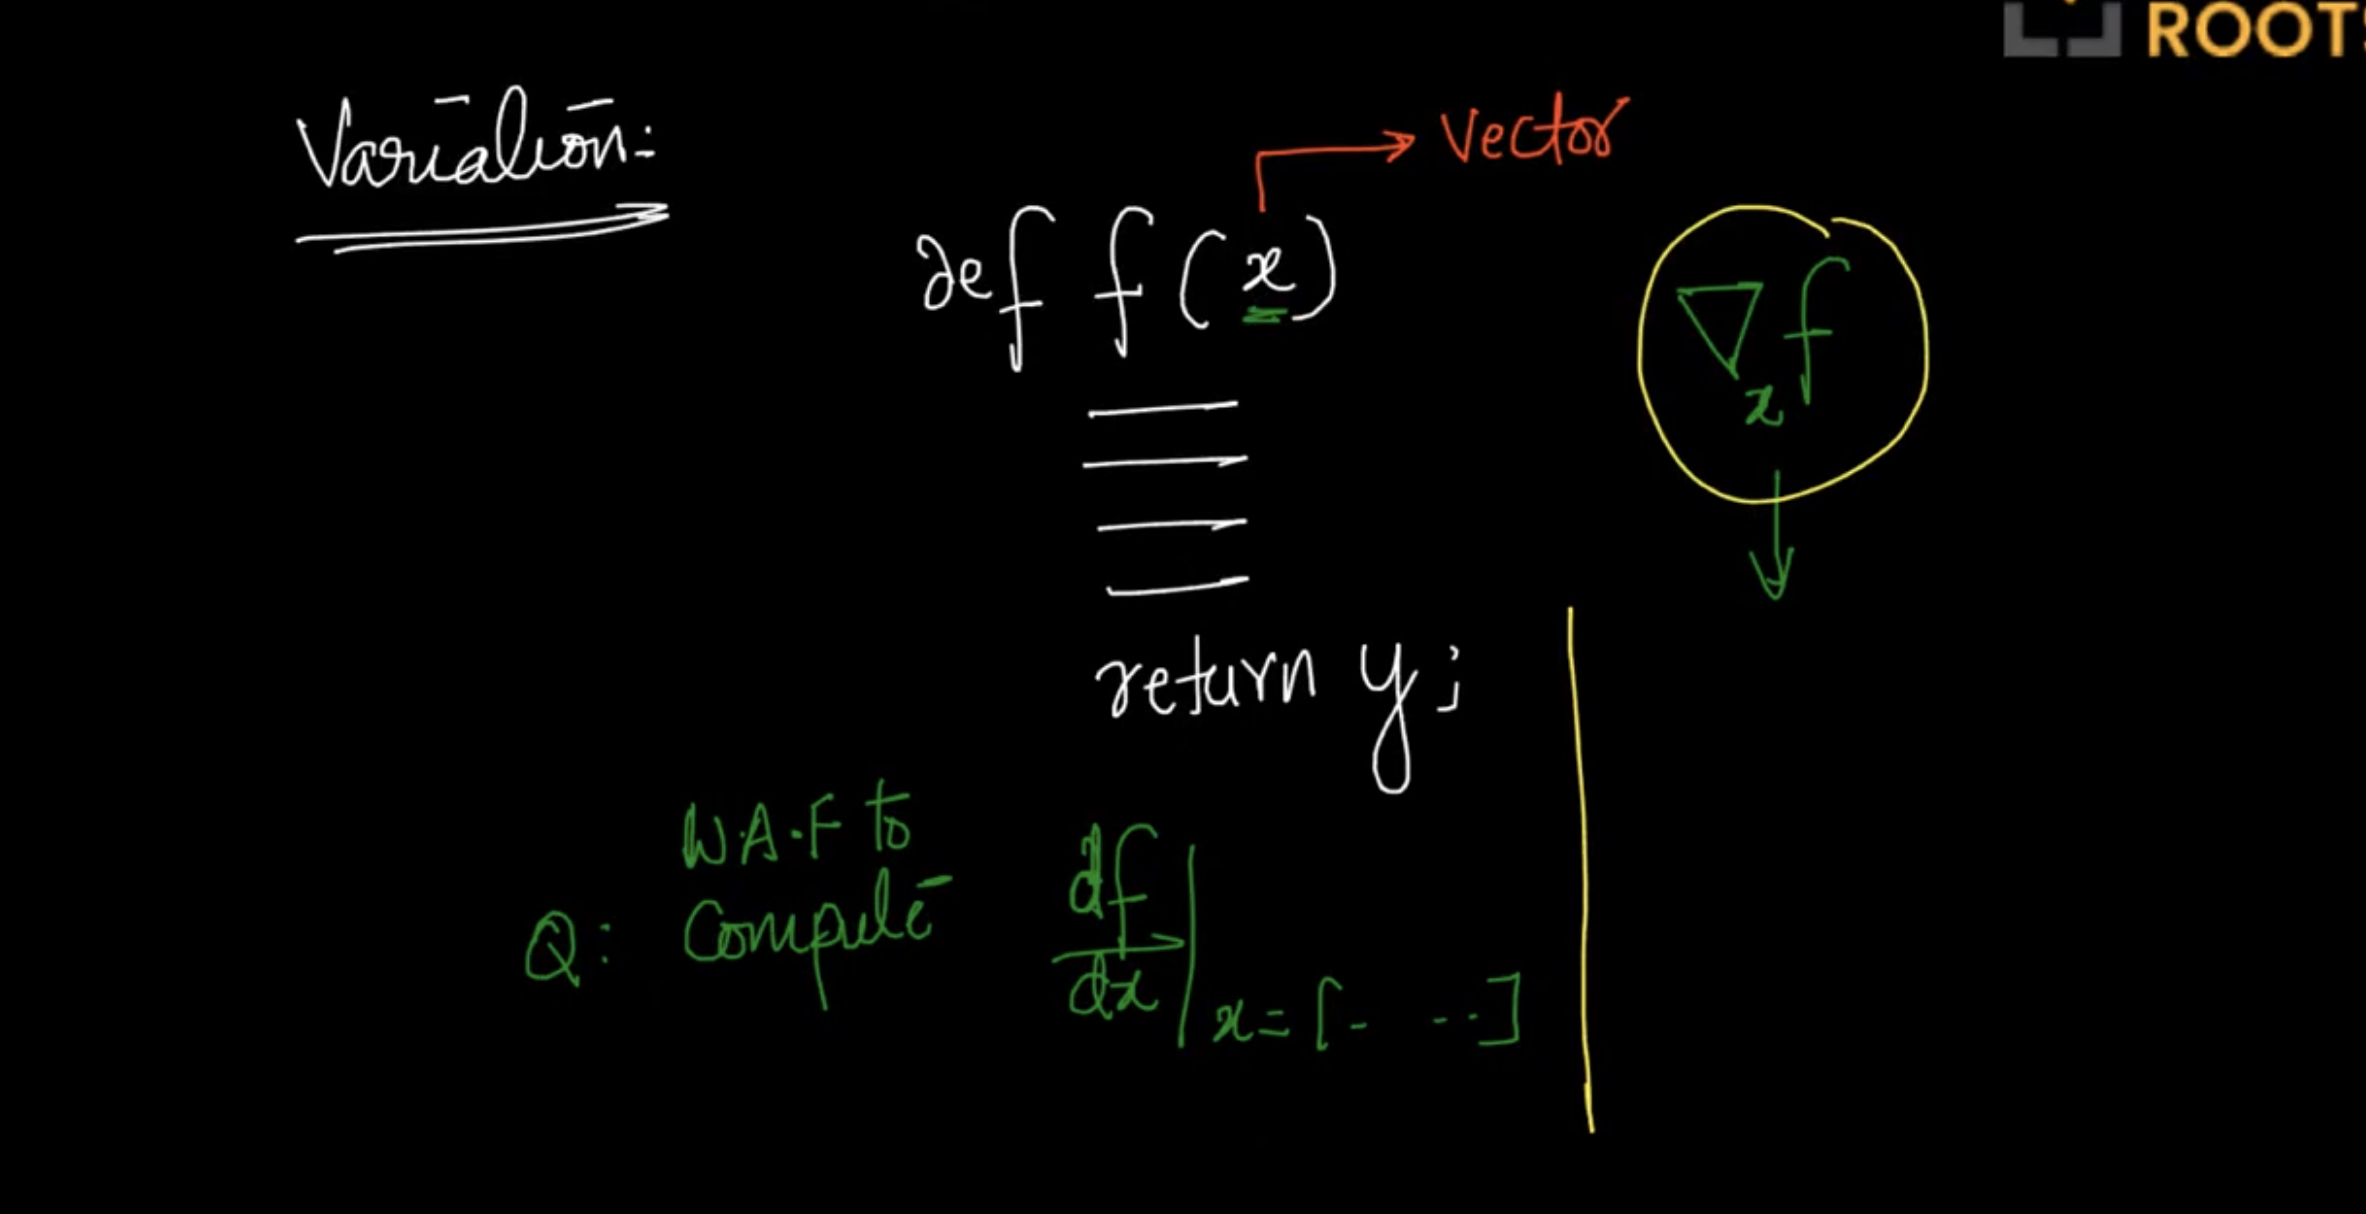 ROOTS
Variation:
Vector
def f(x)
∇x f
return y;
W.A.F to
Q: Compute df/dx | x = [- - ..]